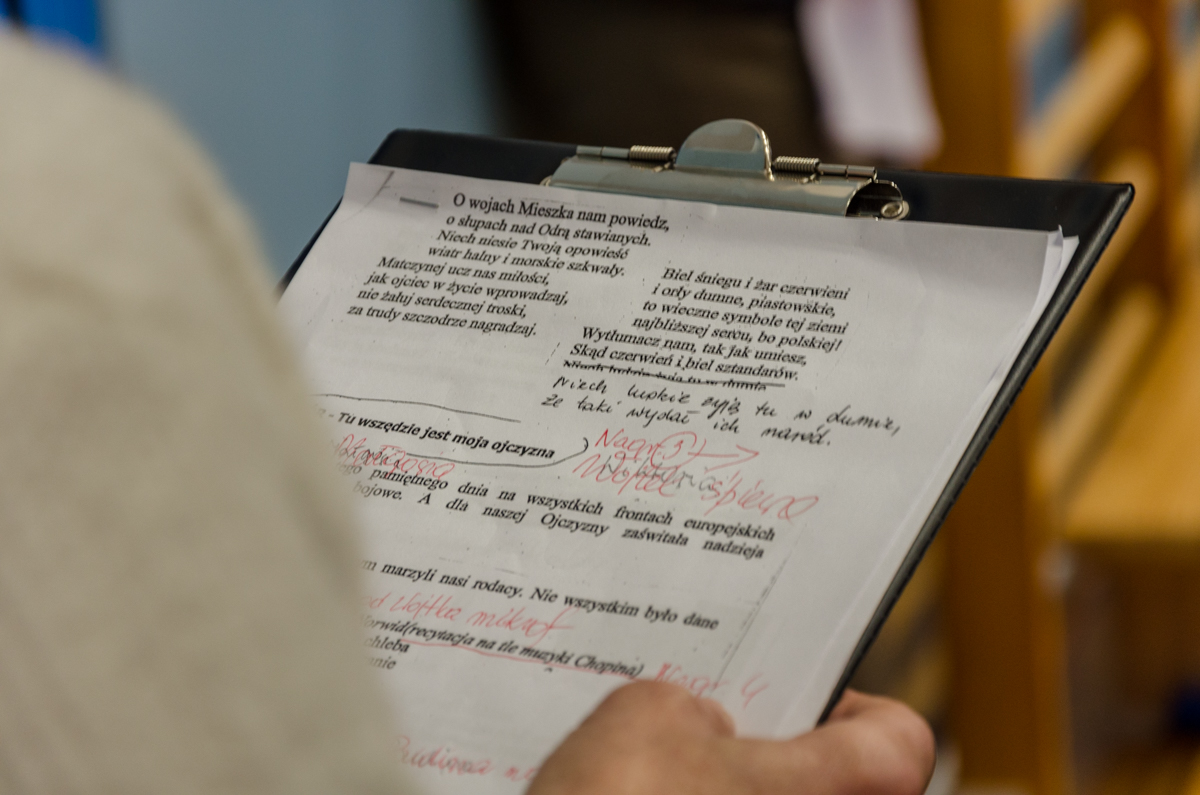 O wojach Mieszka nam powiedz,
o słupach nad Odrą stawianych.
Niech niesie Twoją opowieść
wiatr halny i morskie szkwały.
Matczynej ucz nas miłości,
jak ojciec w życie wprowadzaj,
nie żałuj serdecznej troski,
za trudy szczodrze nagradzaj.
Biel śniegu i żar czerwieni
i orły dumne, piastowskie,
to wieczne symbole tej ziemi
najbliższej sercu, bo polskiej!
Wytłumacz nam, tak jak umiesz,
Skąd czerwień i biel sztandarów.
Niech ludzie żyją tu w dumie,
że taki wydał ich naród.
- Tu wszędzie jest moja ojczyzna
Nagr 5
Wojtek śpiewa
pamiętnego dnia na wszystkich frontach europejskich
bojowe. A dla naszej Ojczyzny zaświtała nadzieja
marzyli nasi rodacy. Nie wszystkim było dane
od Wojtka mikrof
Norwid(recytacja na tle muzyki Chopina) Nagr 4
chleba